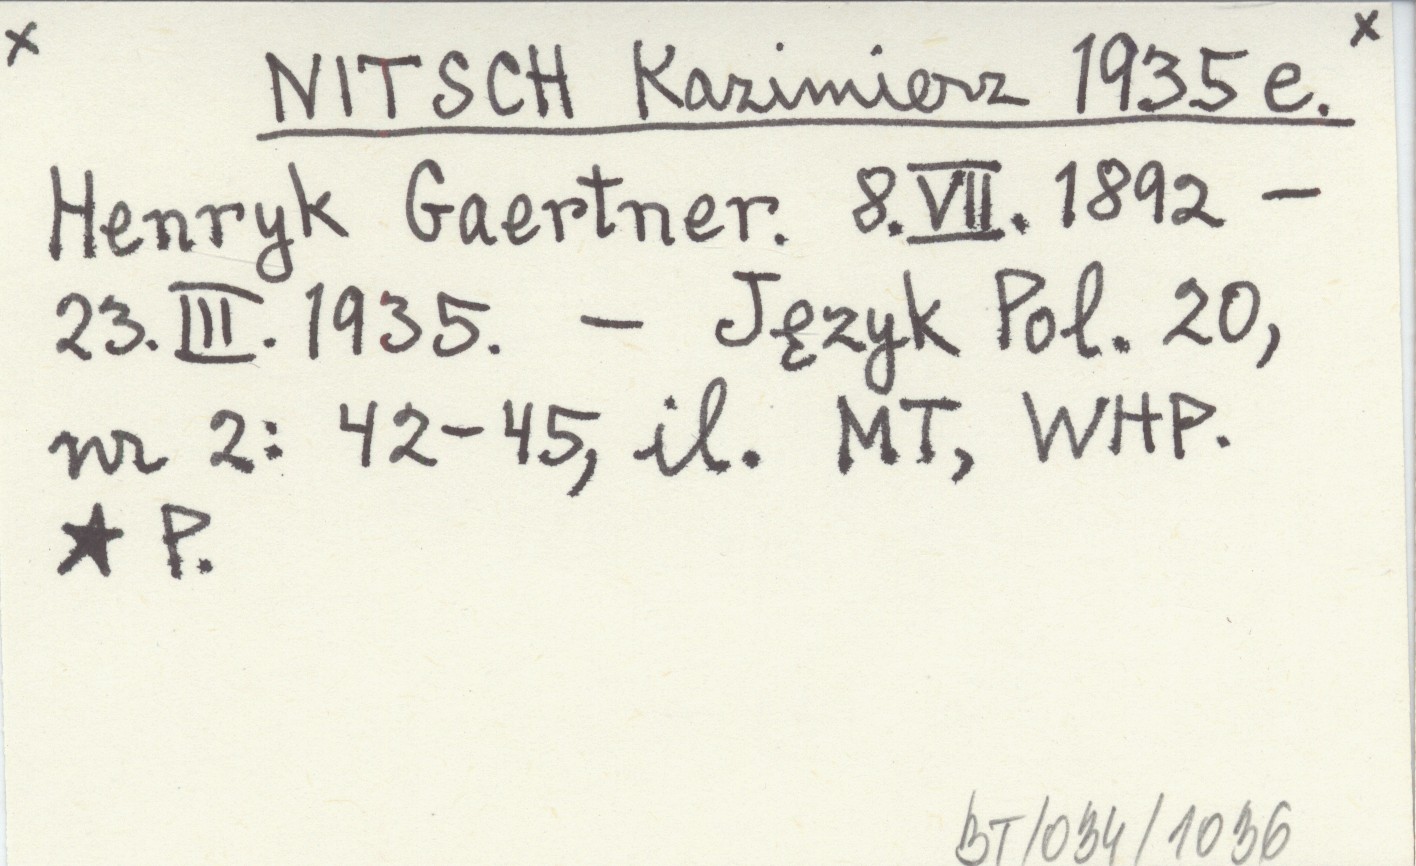 x x
NITSCH Kazimierz 1935 e.
Henryk Gaertner. 8.VII. 1892 –
23.III. 1935. – Język Pol. 20,
nr 2: 42–45, il. MT, WHP.
★ P.
BT/034/1036